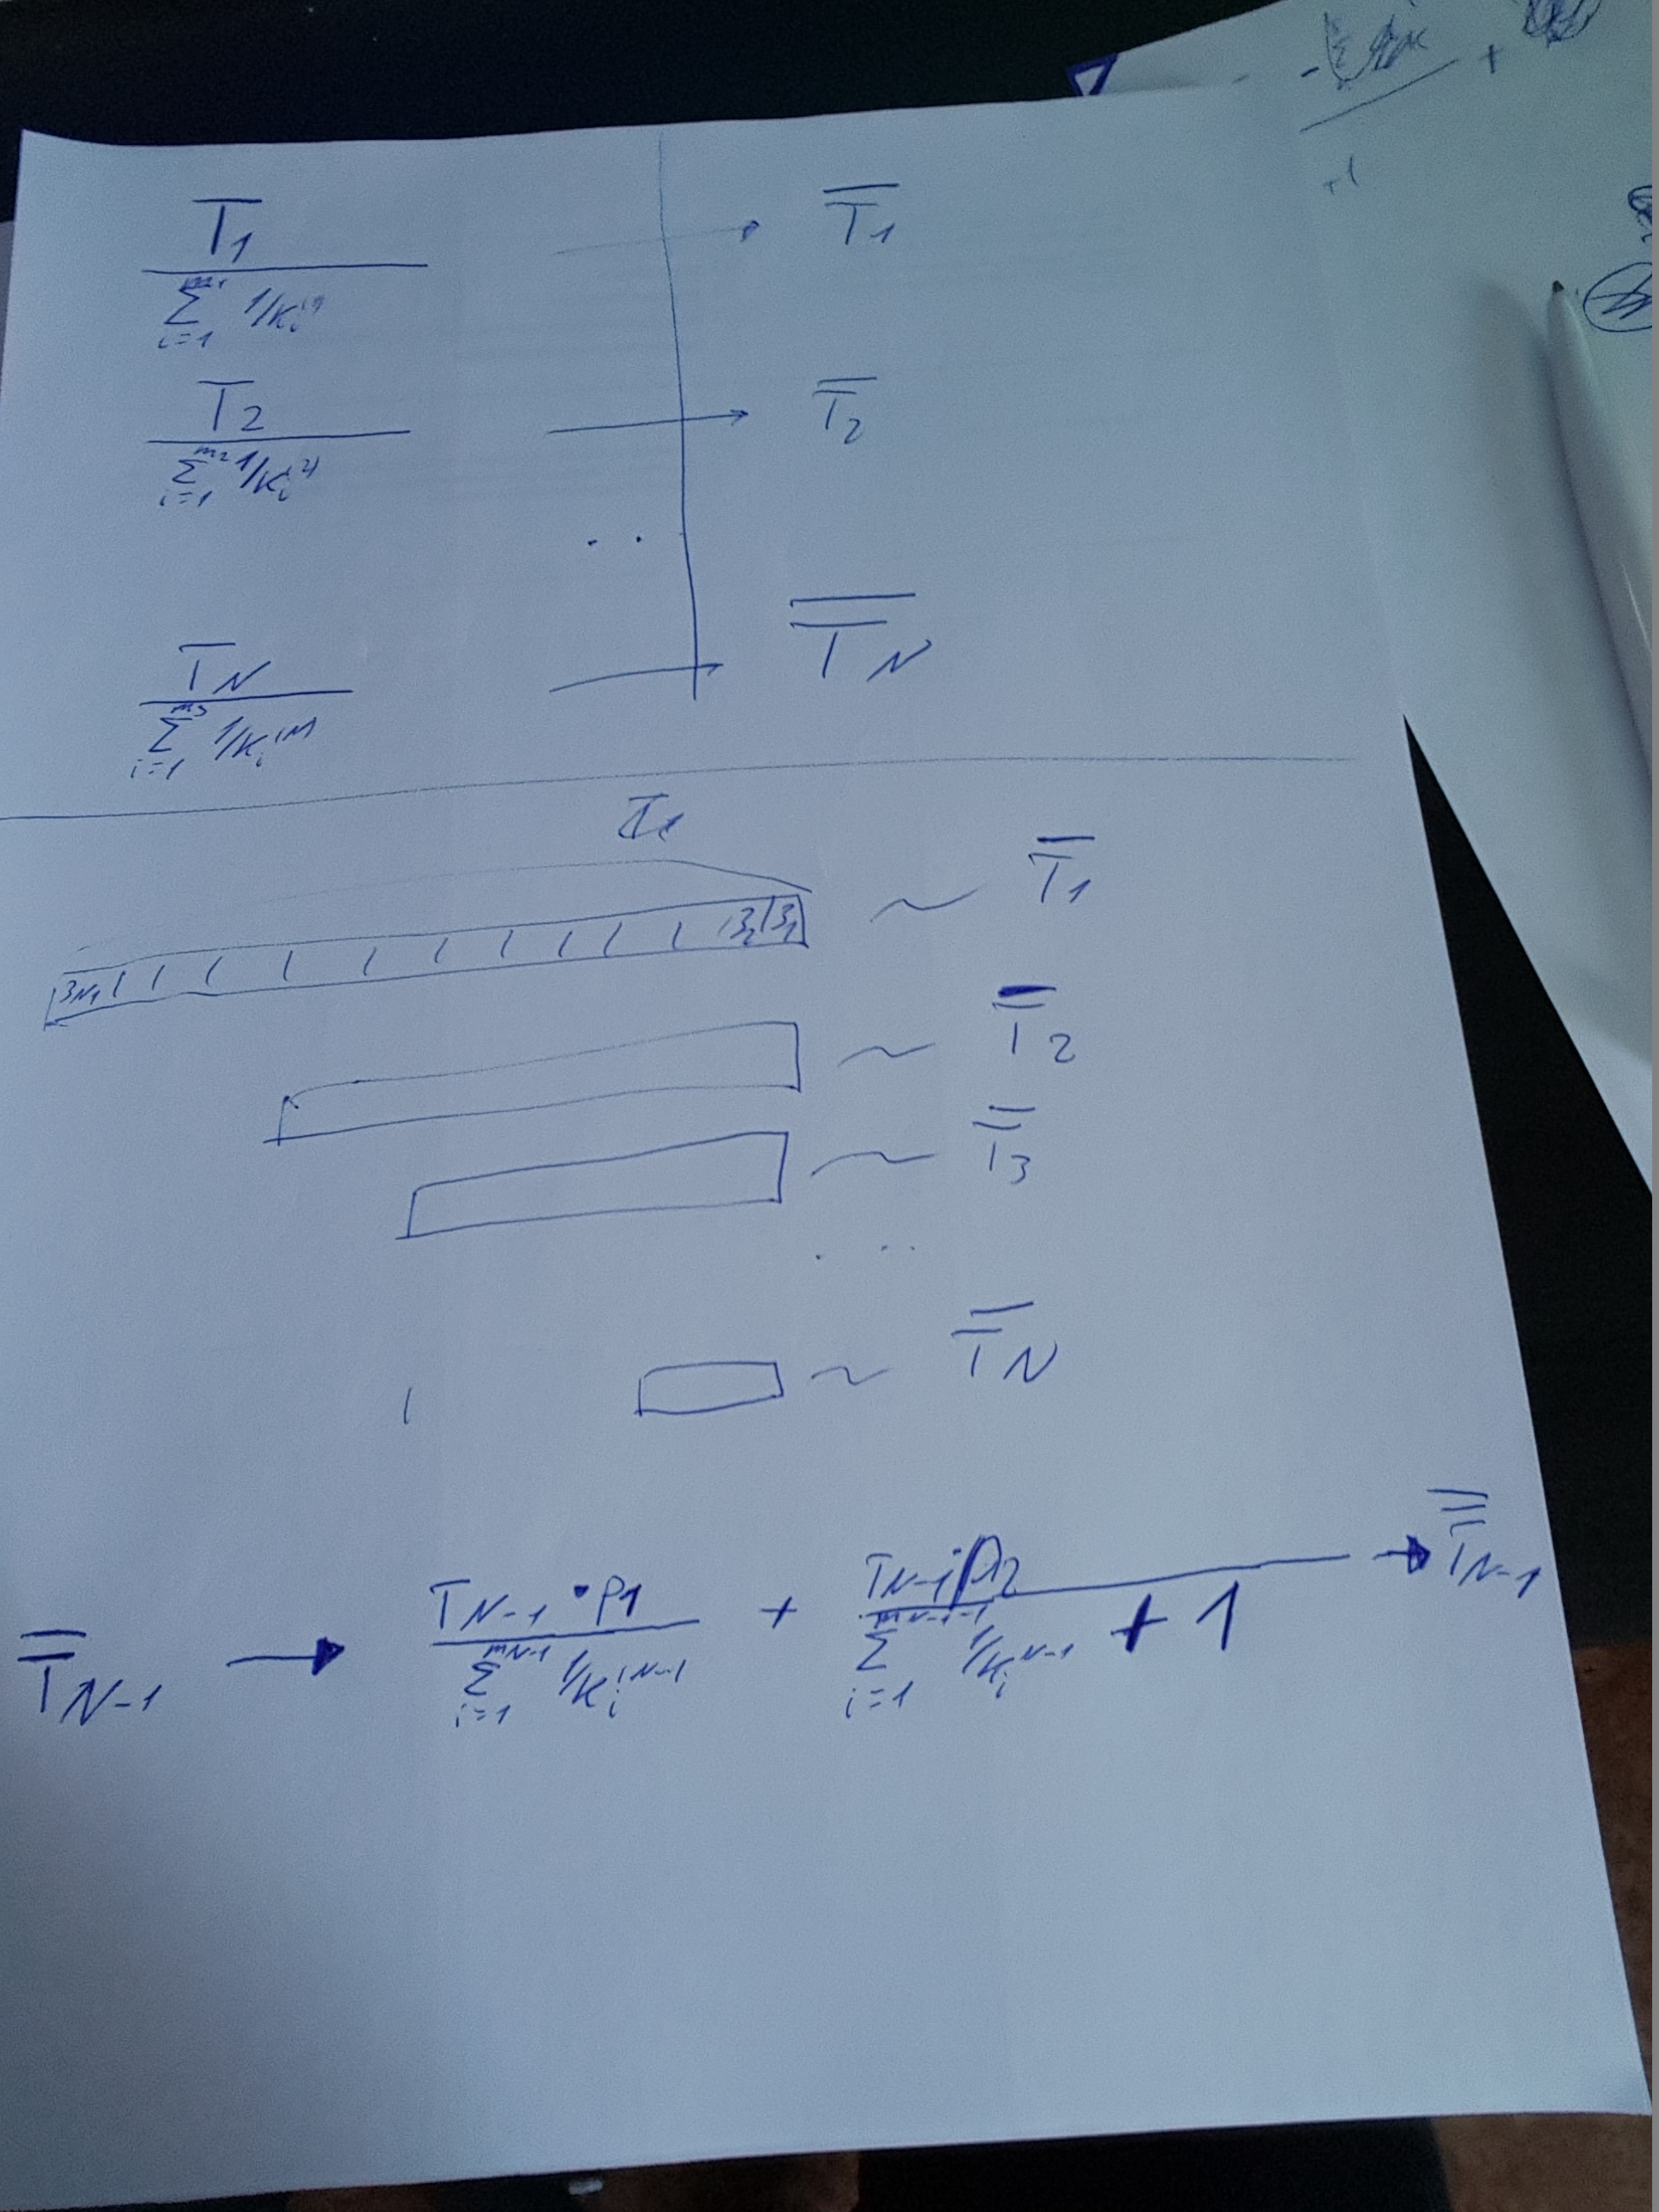 T1 / Σ_{i=1}^{m1} 1/K_i^{(1)} → T̿1
T2 / Σ_{i=1}^{m2} 1/K_i^{(2)} → T̿2
. .
TN / Σ_{i=1}^{m3} 1/K_i^{(N)} → T̿N
3N1 3 2 3 1 ~ T̿1
~ T̿2
~ T̿3
. . .
~ T̿N
T̿N-1 → TN-1 · p1 / Σ_{i=1}^{mN-1} 1/K_i^{(N-1)} + TN-1 · p2 / (Σ_{i=1}^{mN-1} 1/K_i^{N-1} + 1) → T̿N-1